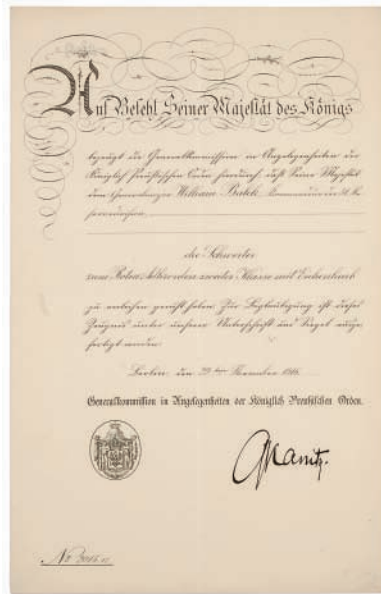 Auf Befehl Seiner Majestät des Königs
bezeugt die Generalkommission in Angelegenheiten der
Königlich Preußischen Orden hierdurch, daß Seine Majestät
dem Generalmajor William Balck, Kommandeur der
die Schwerter
zum Roten Adlerorden zweiter Klasse mit Eichenlaub
zu verleihen geruht haben. Zur Beglaubigung ist dieses
Zeugnis unter unserer Unterschrift und Siegel ausge-
fertigt worden.
Berlin, den November
Generalkommission in Angelegenheiten der Königlich Preußischen Orden.